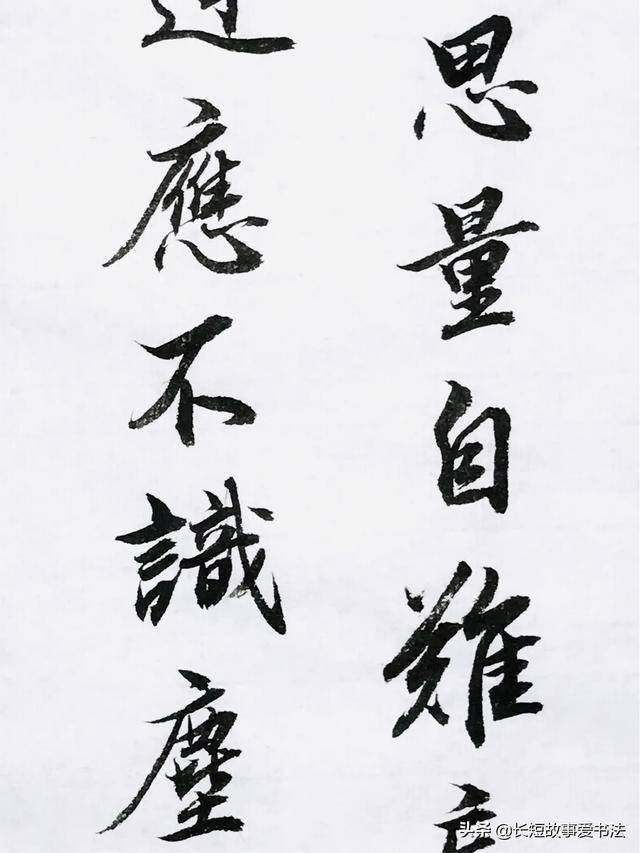 思量自難
應不識塵
头条 @长短故事爱书法